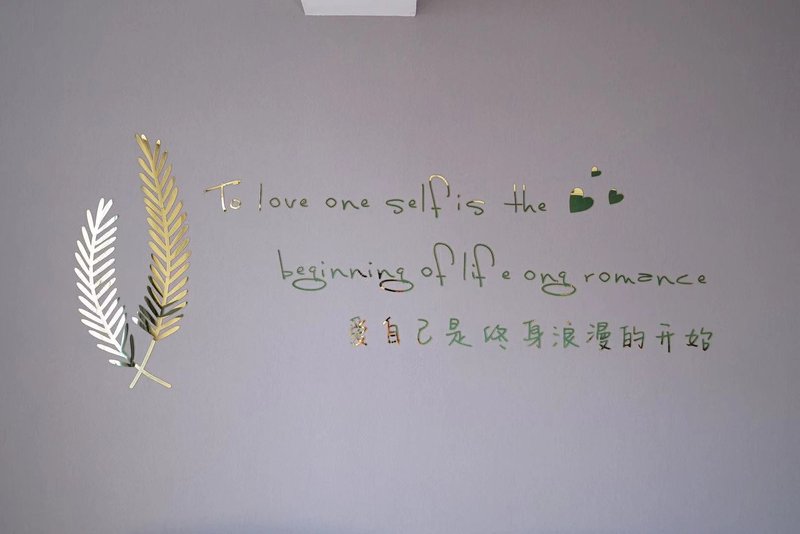 To love one self is the
beginning of life ong romance
愛自己是终身浪漫的开始